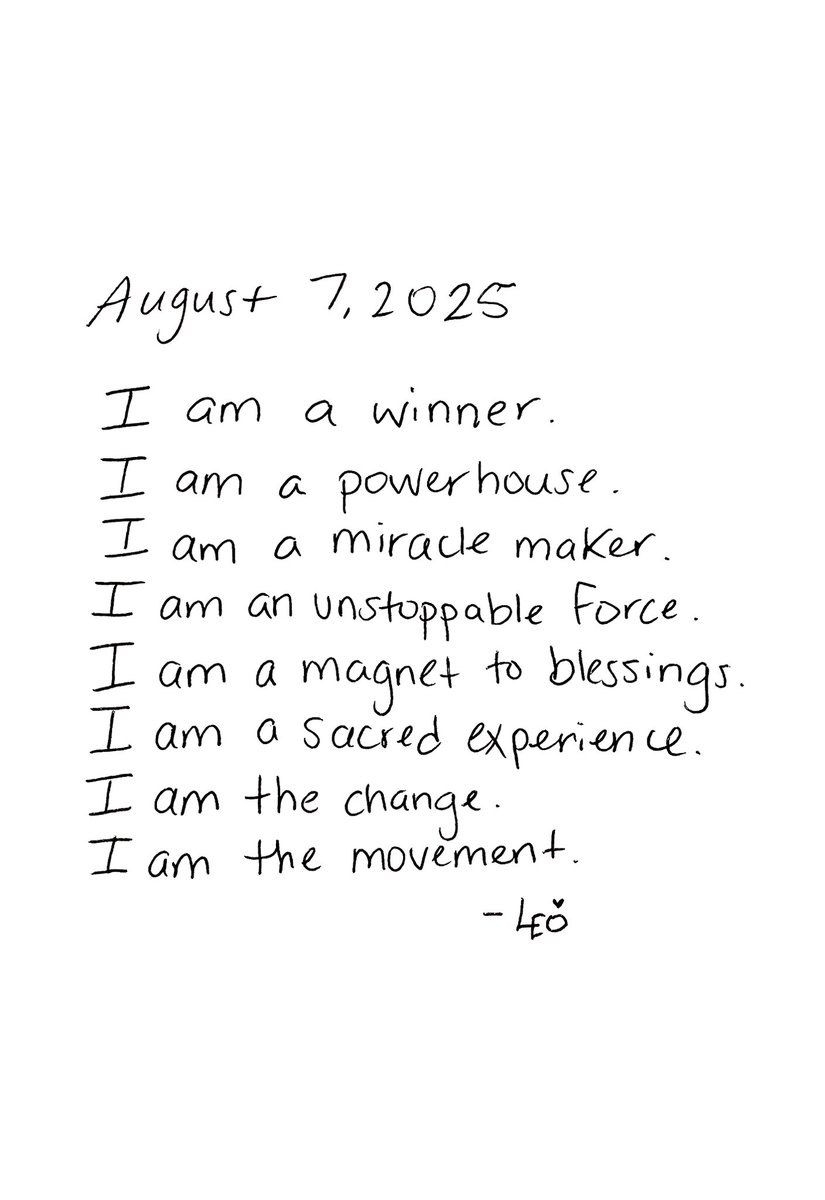 August 7, 2025
I am a winner.
I am a powerhouse.
I am a miracle maker.
I am an unstoppable force.
I am a magnet to blessings.
I am a sacred experience.
I am the change.
I am the movement.
- LEO